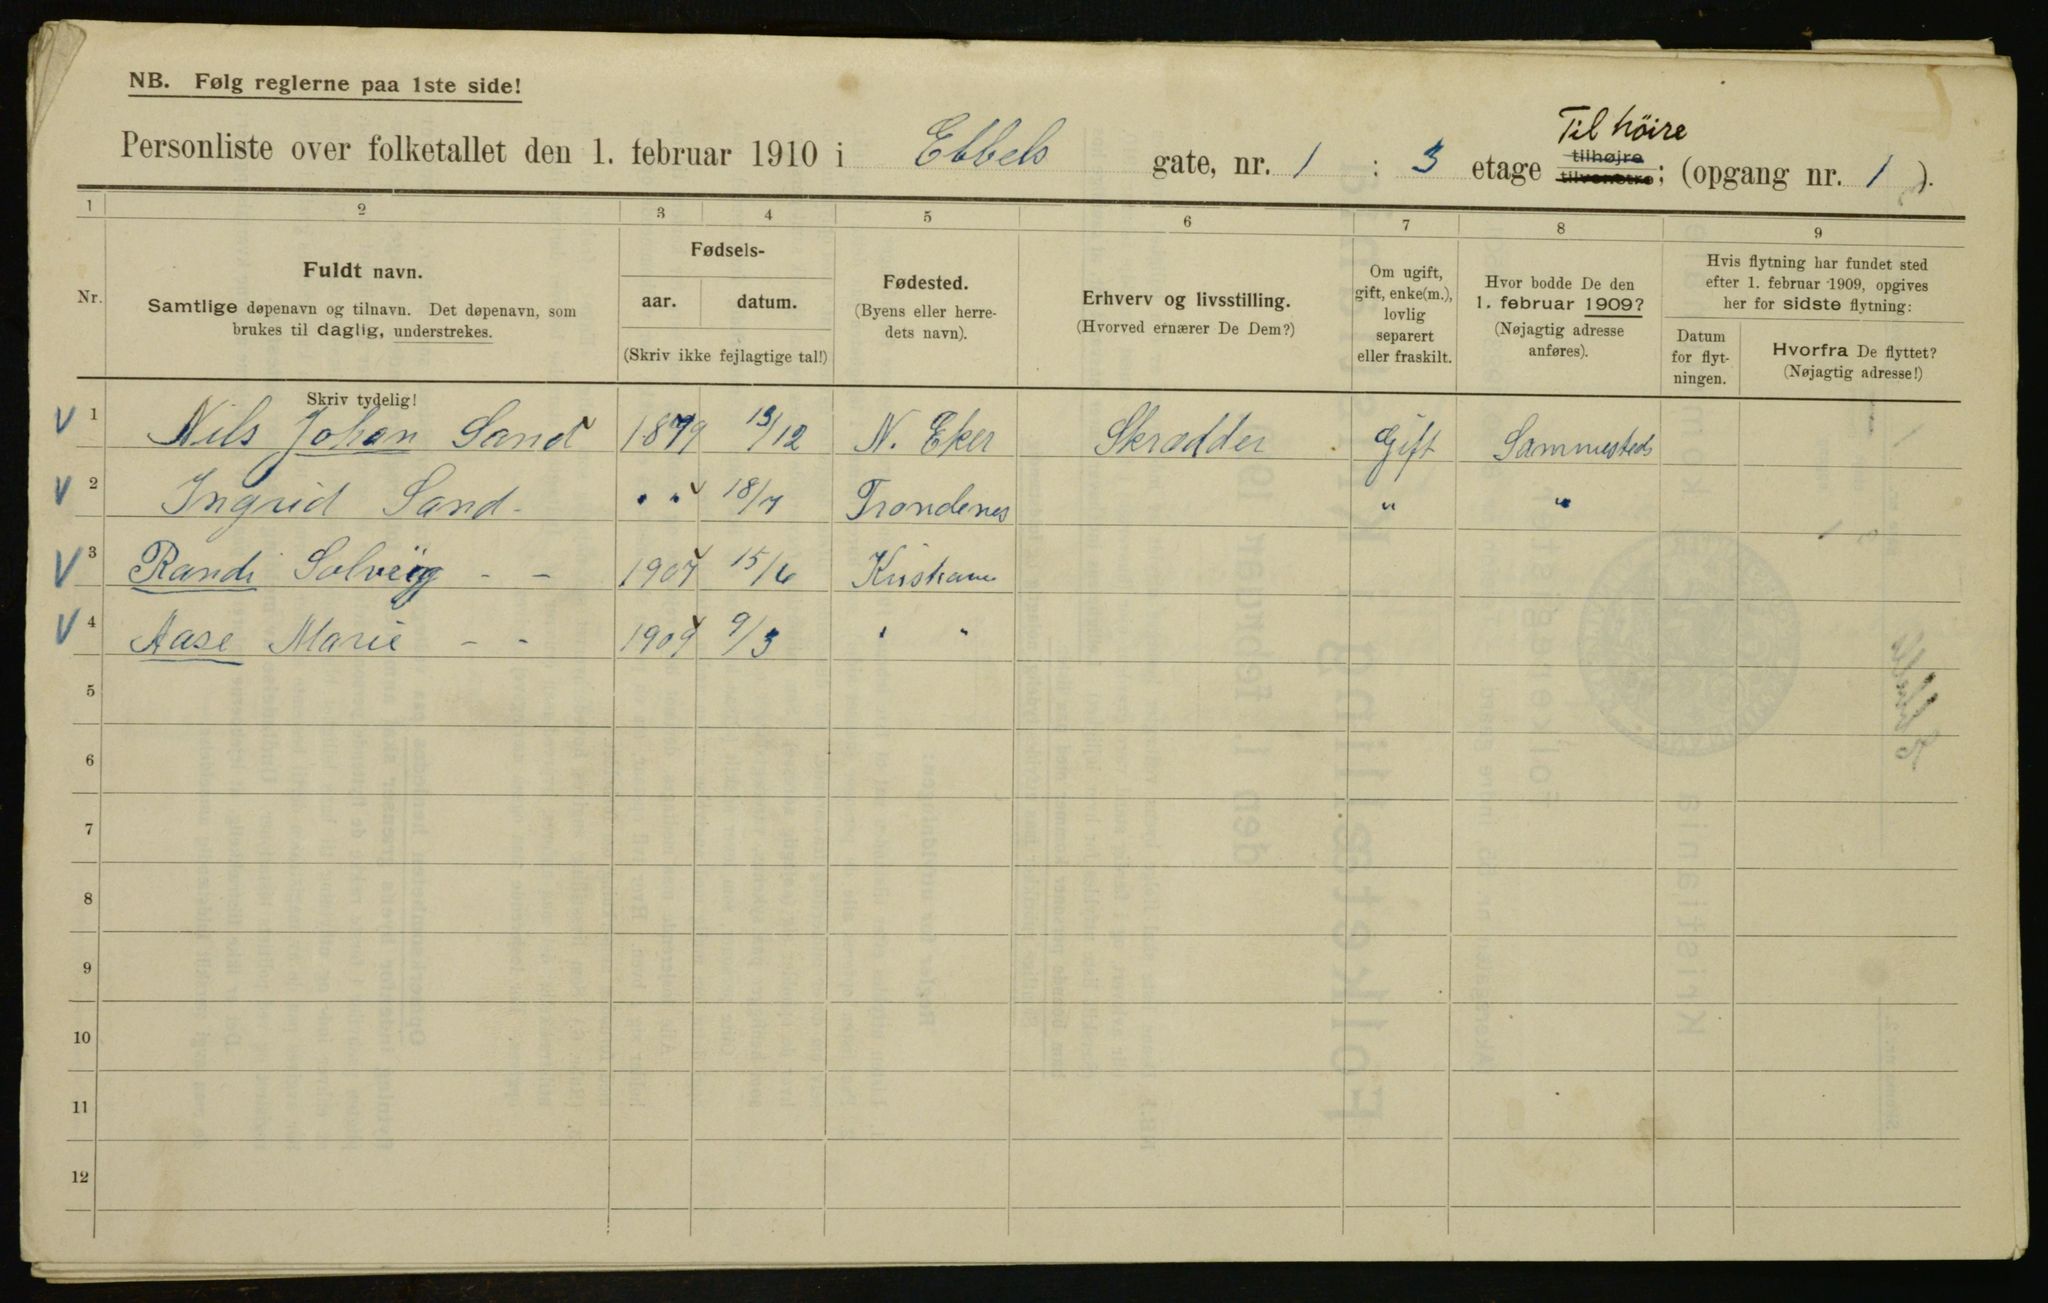 NB. Følg reglerne paa 1ste side!
Personliste over folketallet den 1. februar 1910 i Ebbels gate, nr. 1 : 3 etage tilhøjre tilvenstre; (opgang nr. 1).
Til höire
1 2 3 4 5 6 7 8 9
Nr.
Fuldt navn.
Samtlige døpenavn og tilnavn. Det døpenavn, som
brukes til daglig, understrekes.
Fødsels-
aar. datum.
(Skriv ikke fejlagtige tal!)
Fødested.
(Byens eller herre-
dets navn).
Erhverv og livsstilling.
(Hvorved ernærer De Dem?)
Om ugift,
gift, enke(m.),
lovlig
separert
eller fraskilt.
Hvor bodde De den
1. februar 1909?
(Nøjagtig adresse
anføres).
Hvis flytning har fundet sted
efter 1. februar 1909, opgives
her for sidste flytning:
Datum
for flyt-
ningen.
Hvorfra De flyttet?
(Nøjagtig adresse!)
Skriv tydelig!
1 Nils Johan Sand 1879 13/12 N. Eker Skrædder Gift Sammesteds
2 Ingrid Sand " " 18/7 Trondenes " "
3 Randi Solveig - - 1907 15/6
4 Aase Marie - - 1909 9/3 " "
5
6
7
8
9
10
11
12